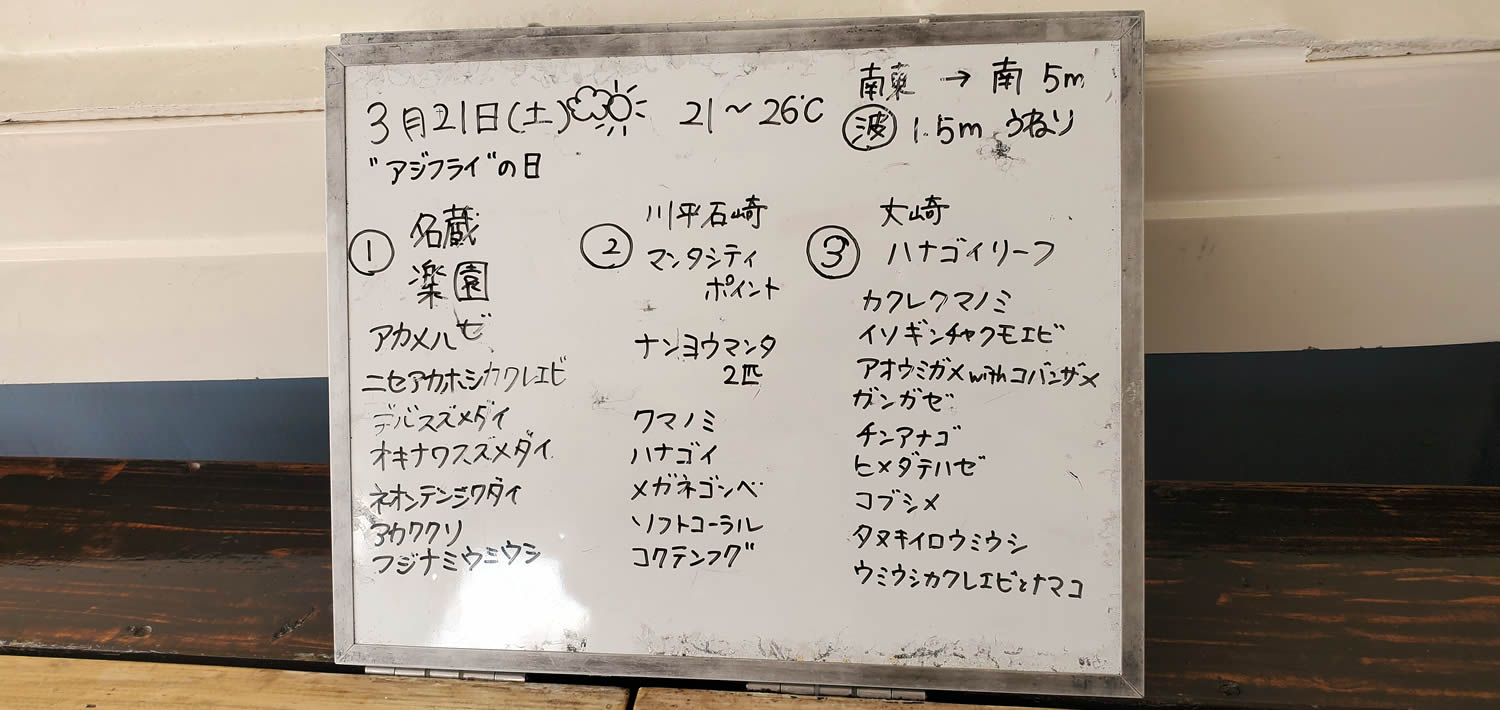 3月21日(土) 21〜26℃
南東 → 南 5m
波 1.5m うねり
"アジフライ"の日
① 名蔵
楽園
アカメハゼ
ニセアカホシカクレエビ
デバスズメダイ
オキナワスズメダイ
ネオンテンジクダイ
アカククリ
フジナミウミウシ
② 川平石崎
マンタシティ
ポイント
ナンヨウマンタ
2匹
クマノミ
ハナゴイ
メガネゴンベ
ソフトコーラル
コクテンフグ
③ 大崎
ハナゴイリーフ
カクレクマノミ
イソギンチャクモエビ
アオウミガメwithコバンザメ
ガンガゼ
チンアナゴ
ヒメダテハゼ
コブシメ
タヌキイロウミウシ
ウミウシカクレエビとナマコ